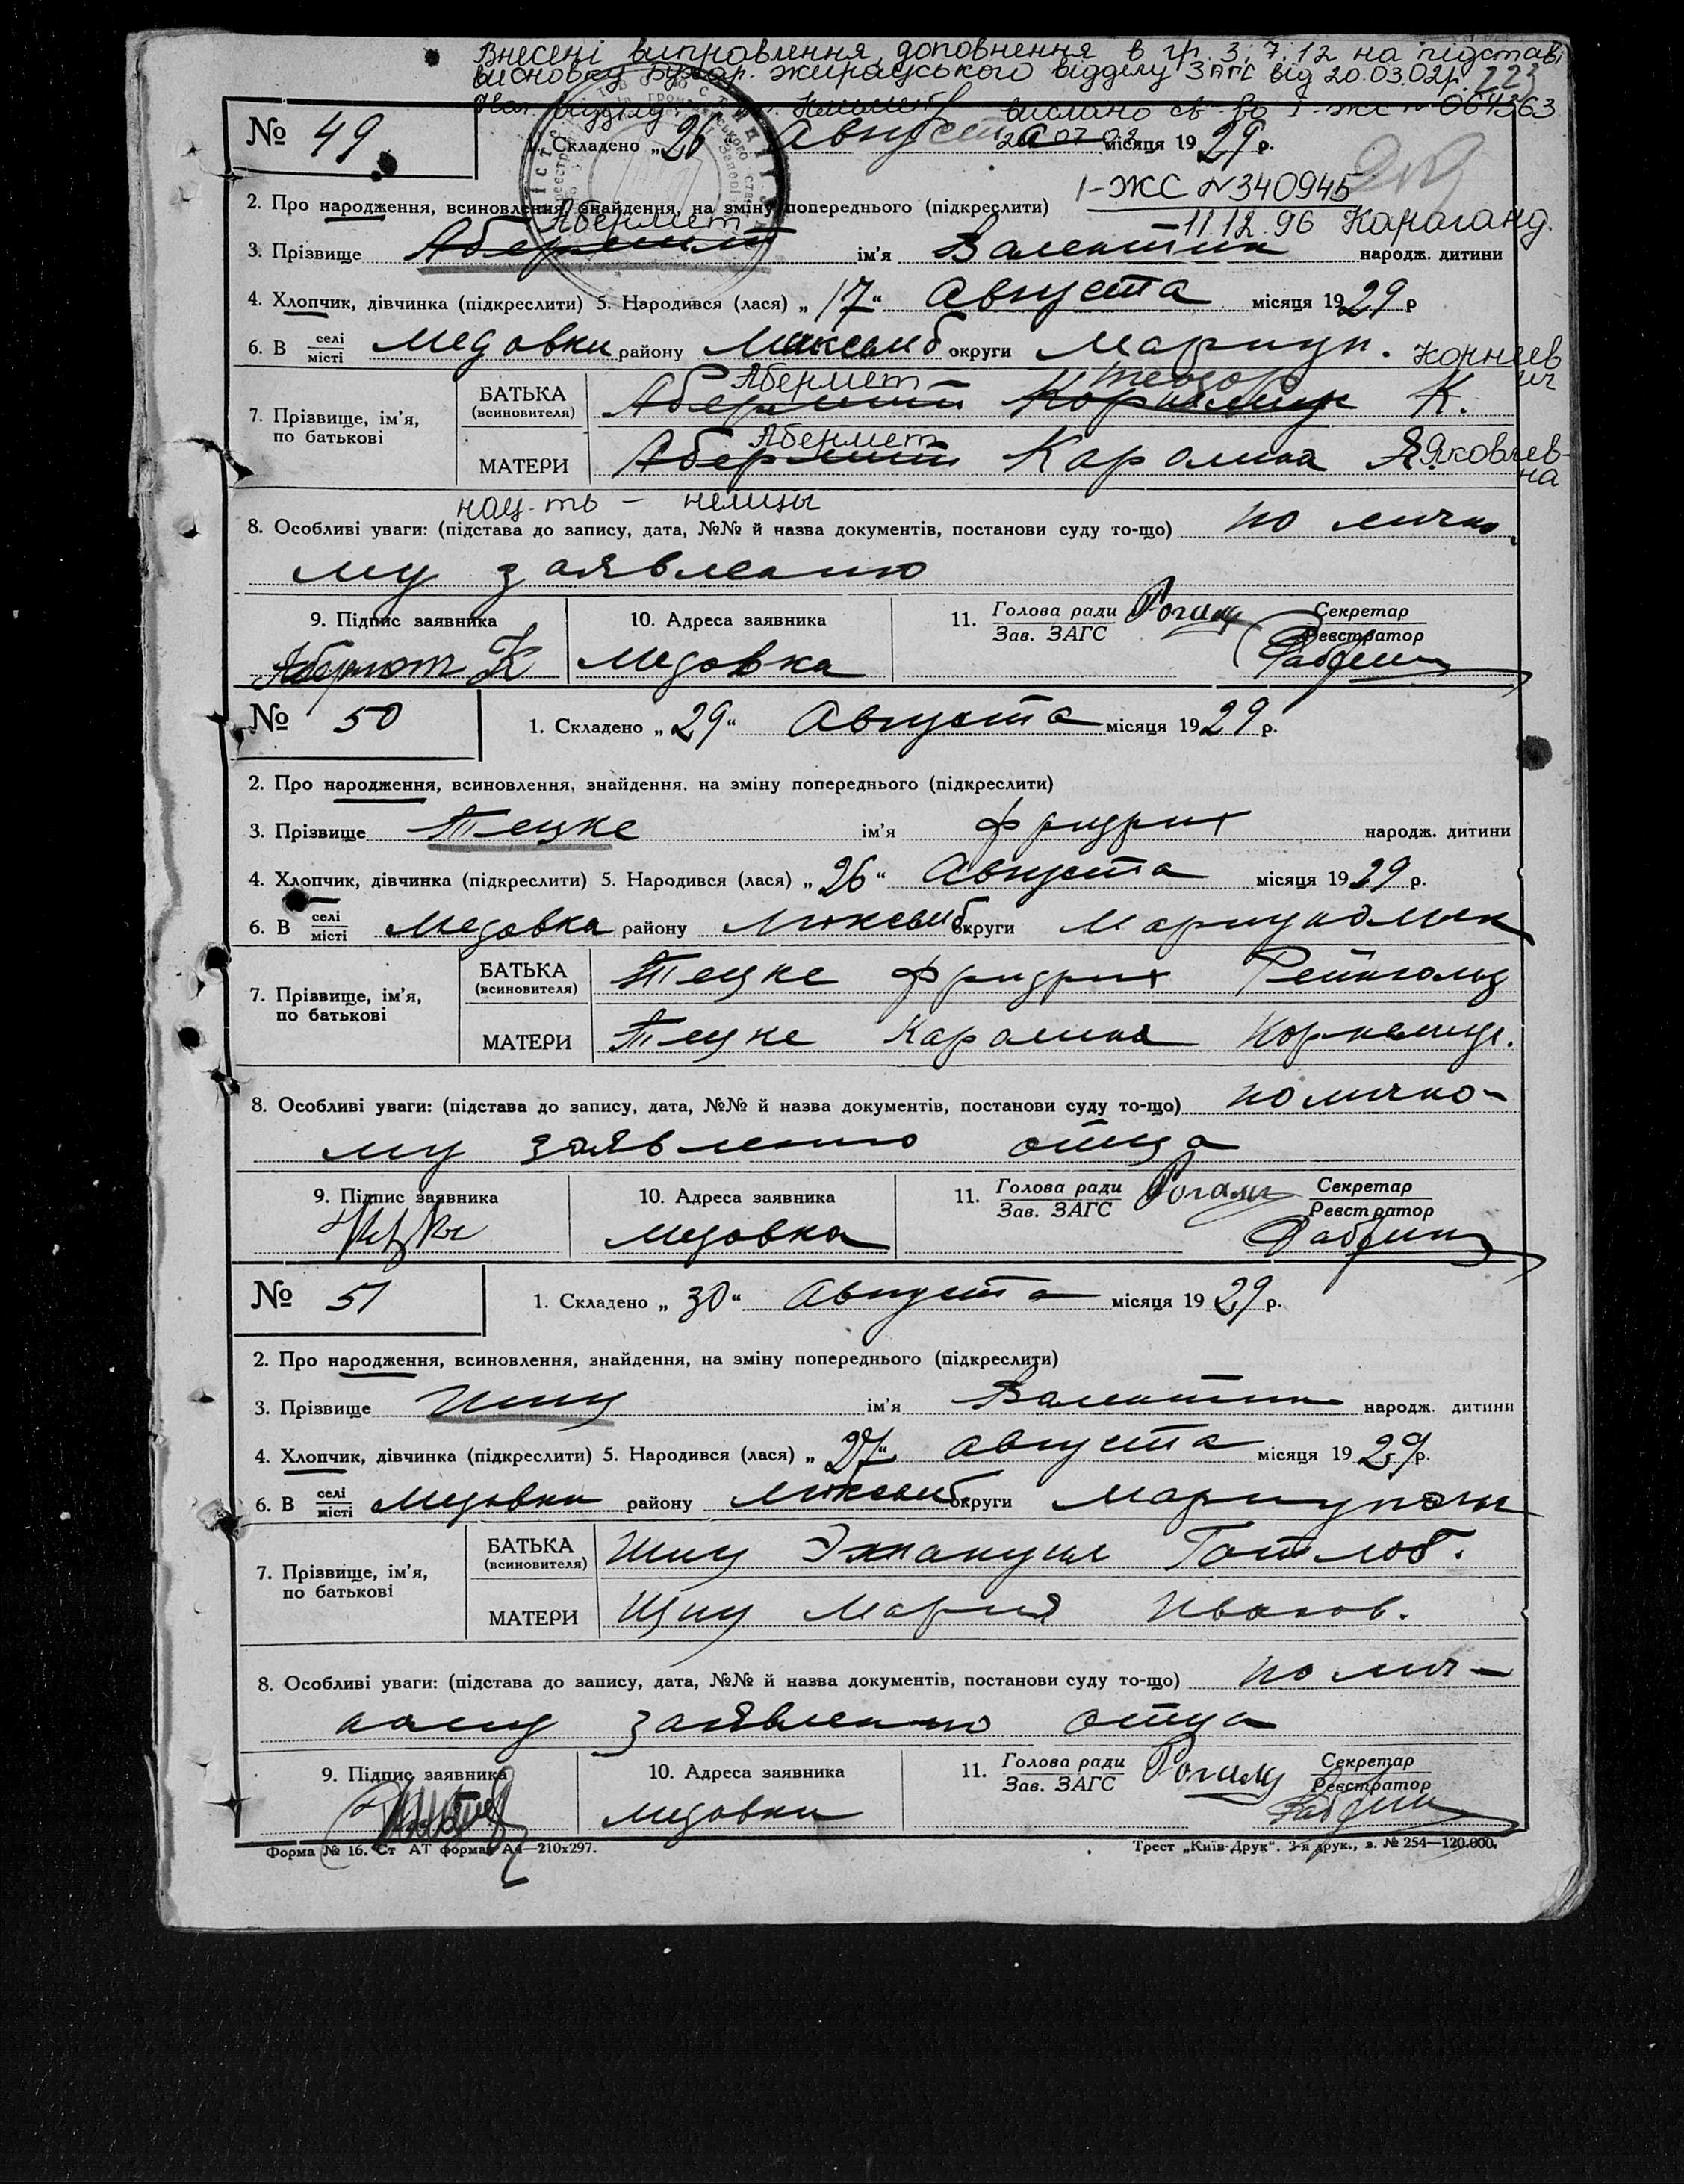 Внесені виправлення, доповнення в гр. 3; 7; 12 на підставі
висновку Бухар. Жирауського відділу ЗАГС від 20.03.02р. 223
відділу вислано св-во I-ЖС № 064363
№ 49 1. Складено „26“ Августа місяця 1929 р.
I-ЖС № 340945
2. Про народження, всиновлення, знайдення, на зміну попереднього (підкреслити)
11.12.96 Караганд.
Абермет
3. Прізвище Абермит ім'я Валентин народж. дитини
4. Хлопчик, дівчинка (підкреслити) 5. Народився (лася) „17“ Августа місяця 1929 р
6. В селі місті Медовки району округи Мариуп.
Абермет Теодор Корнеевич
7. Прізвище, ім'я, по батькові БАТЬКА (всиновителя) Абермит К.
Абермет
МАТЕРИ Абермит Каролина Яковлевна
нац-ть - немцы
8. Особливі уваги: (підстава до запису, дата, №№ й назва документів, постанови суду то-що) по лично
му заявлению
9. Підпис заявника 10. Адреса заявника 11. Голова ради Зав. ЗАГС Секретар Реєстратор
Абермет К Медовка
№ 50 1. Складено „29“ Августа місяця 1929 р.
2. Про народження, всиновлення, знайдення, на зміну попереднього (підкреслити)
3. Прізвище Тецке ім'я Фридрих народж. дитини
4. Хлопчик, дівчинка (підкреслити) 5. Народився (лася) „26“ Августа місяця 1929 р.
6. В селі місті Медовка району округи
7. Прізвище, ім'я, по батькові БАТЬКА (всиновителя) Тецке Фридрих Рейнгольд
МАТЕРИ Тецке Каролина
8. Особливі уваги: (підстава до запису, дата, №№ й назва документів, постанови суду то-що) по лично-
му заявлению отца
9. Підпис заявника 10. Адреса заявника 11. Голова ради Зав. ЗАГС Секретар Реєстратор
Медовка
№ 51 1. Складено „30“ Августа місяця 1929 р.
2. Про народження, всиновлення, знайдення, на зміну попереднього (підкреслити)
3. Прізвище ім'я Валентин народж. дитини
4. Хлопчик, дівчинка (підкреслити) 5. Народився (лася) „27“ августа місяця 1929 р.
6. В селі місті Медовки району округи
7. Прізвище, ім'я, по батькові БАТЬКА (всиновителя) Эмануил Готлоб.
МАТЕРИ Мария Иванов.
8. Особливі уваги: (підстава до запису, дата, №№ й назва документів, постанови суду то-що) по лич-
ному заявлению отца
9. Підпис заявника 10. Адреса заявника 11. Голова ради Зав. ЗАГС Секретар Реєстратор
Медовки
Форма № 16. Ст АТ формат А4—210x297. Трест „Київ-Друк“. 3-я друк., з. № 254—120.000.